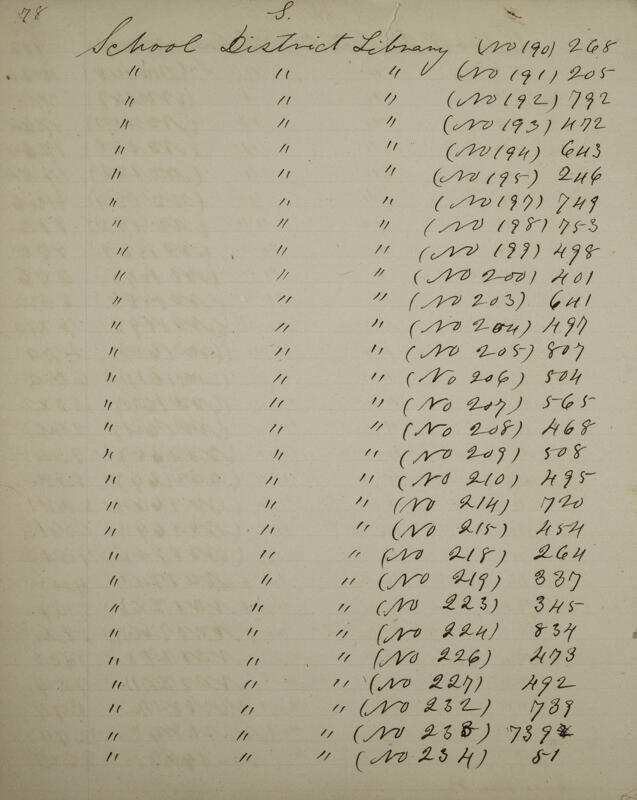 78 S.
School District Library (No 190) 268
" " " (No 191) 205
" " " (No 192) 792
" " " (No 193) 472
" " " (No 194) 643
" " " (No 195) 246
" " " (No 197) 749
" " " (No 198) 753
" " " (No 199) 498
" " " (No 200) 401
" " " (No 203) 641
" " " (No 204) 497
" " " (No 205) 807
" " " (No 206) 504
" " " (No 207) 565
" " " (No 208) 468
" " " (No 209) 508
" " " (No 210) 495
" " " (No 214) 720
" " " (No 215) 454
" " " (No 218) 264
" " " (No 219) 337
" " " (No 223) 345
" " " (No 224) 834
" " " (No 226) 473
" " " (No 227) 492
" " " (No 232) 739
" " " (No 233) 739
" " " (No 234) 51